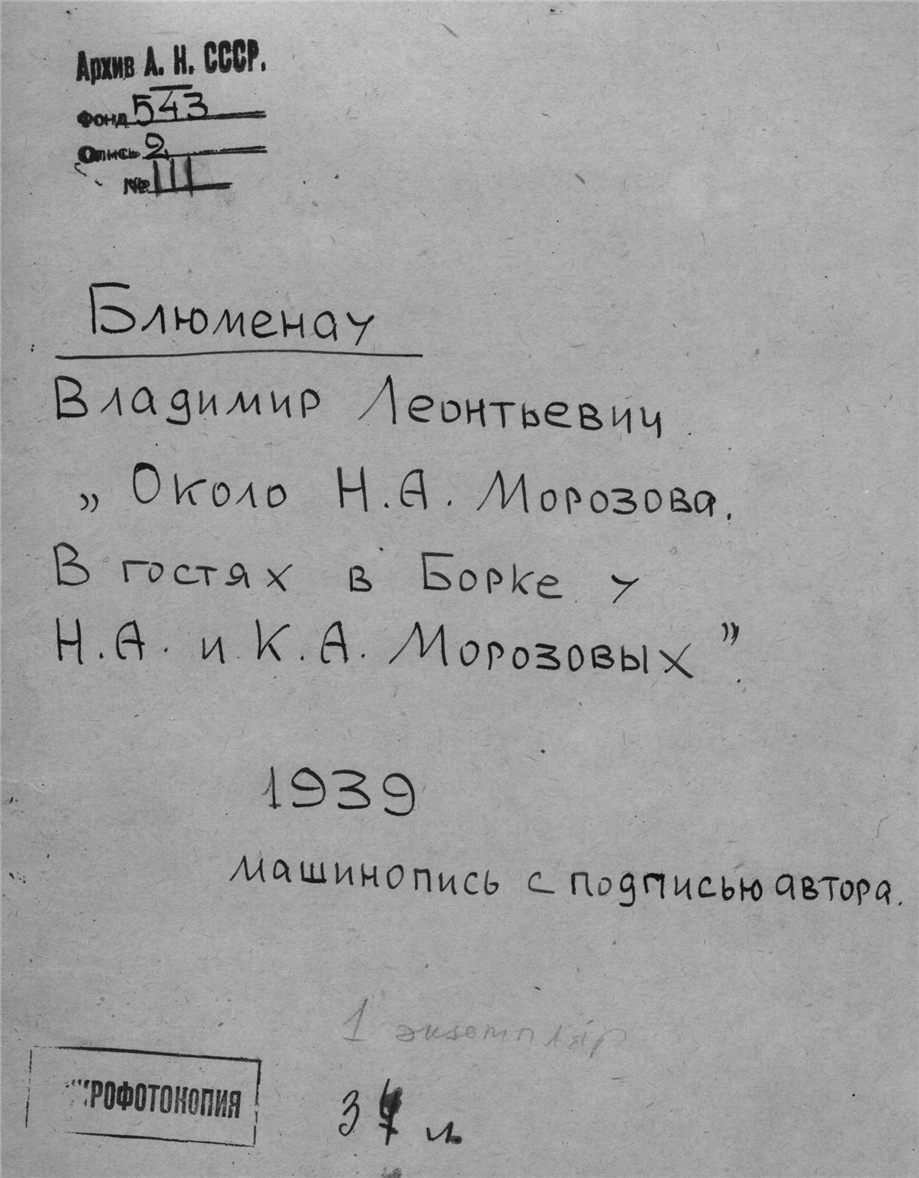 Архив А. Н. СССР.
Фонд 543
Опись 2
№ III
Блюменау
Владимир Леонтьевич
„Около Н.А. Морозова.
В гостях в Борке у
Н.А. и К.А. Морозовых”.
1939
машинопись с подписью автора.
1 экземпляр
РОФОТОКОПИЯ
л